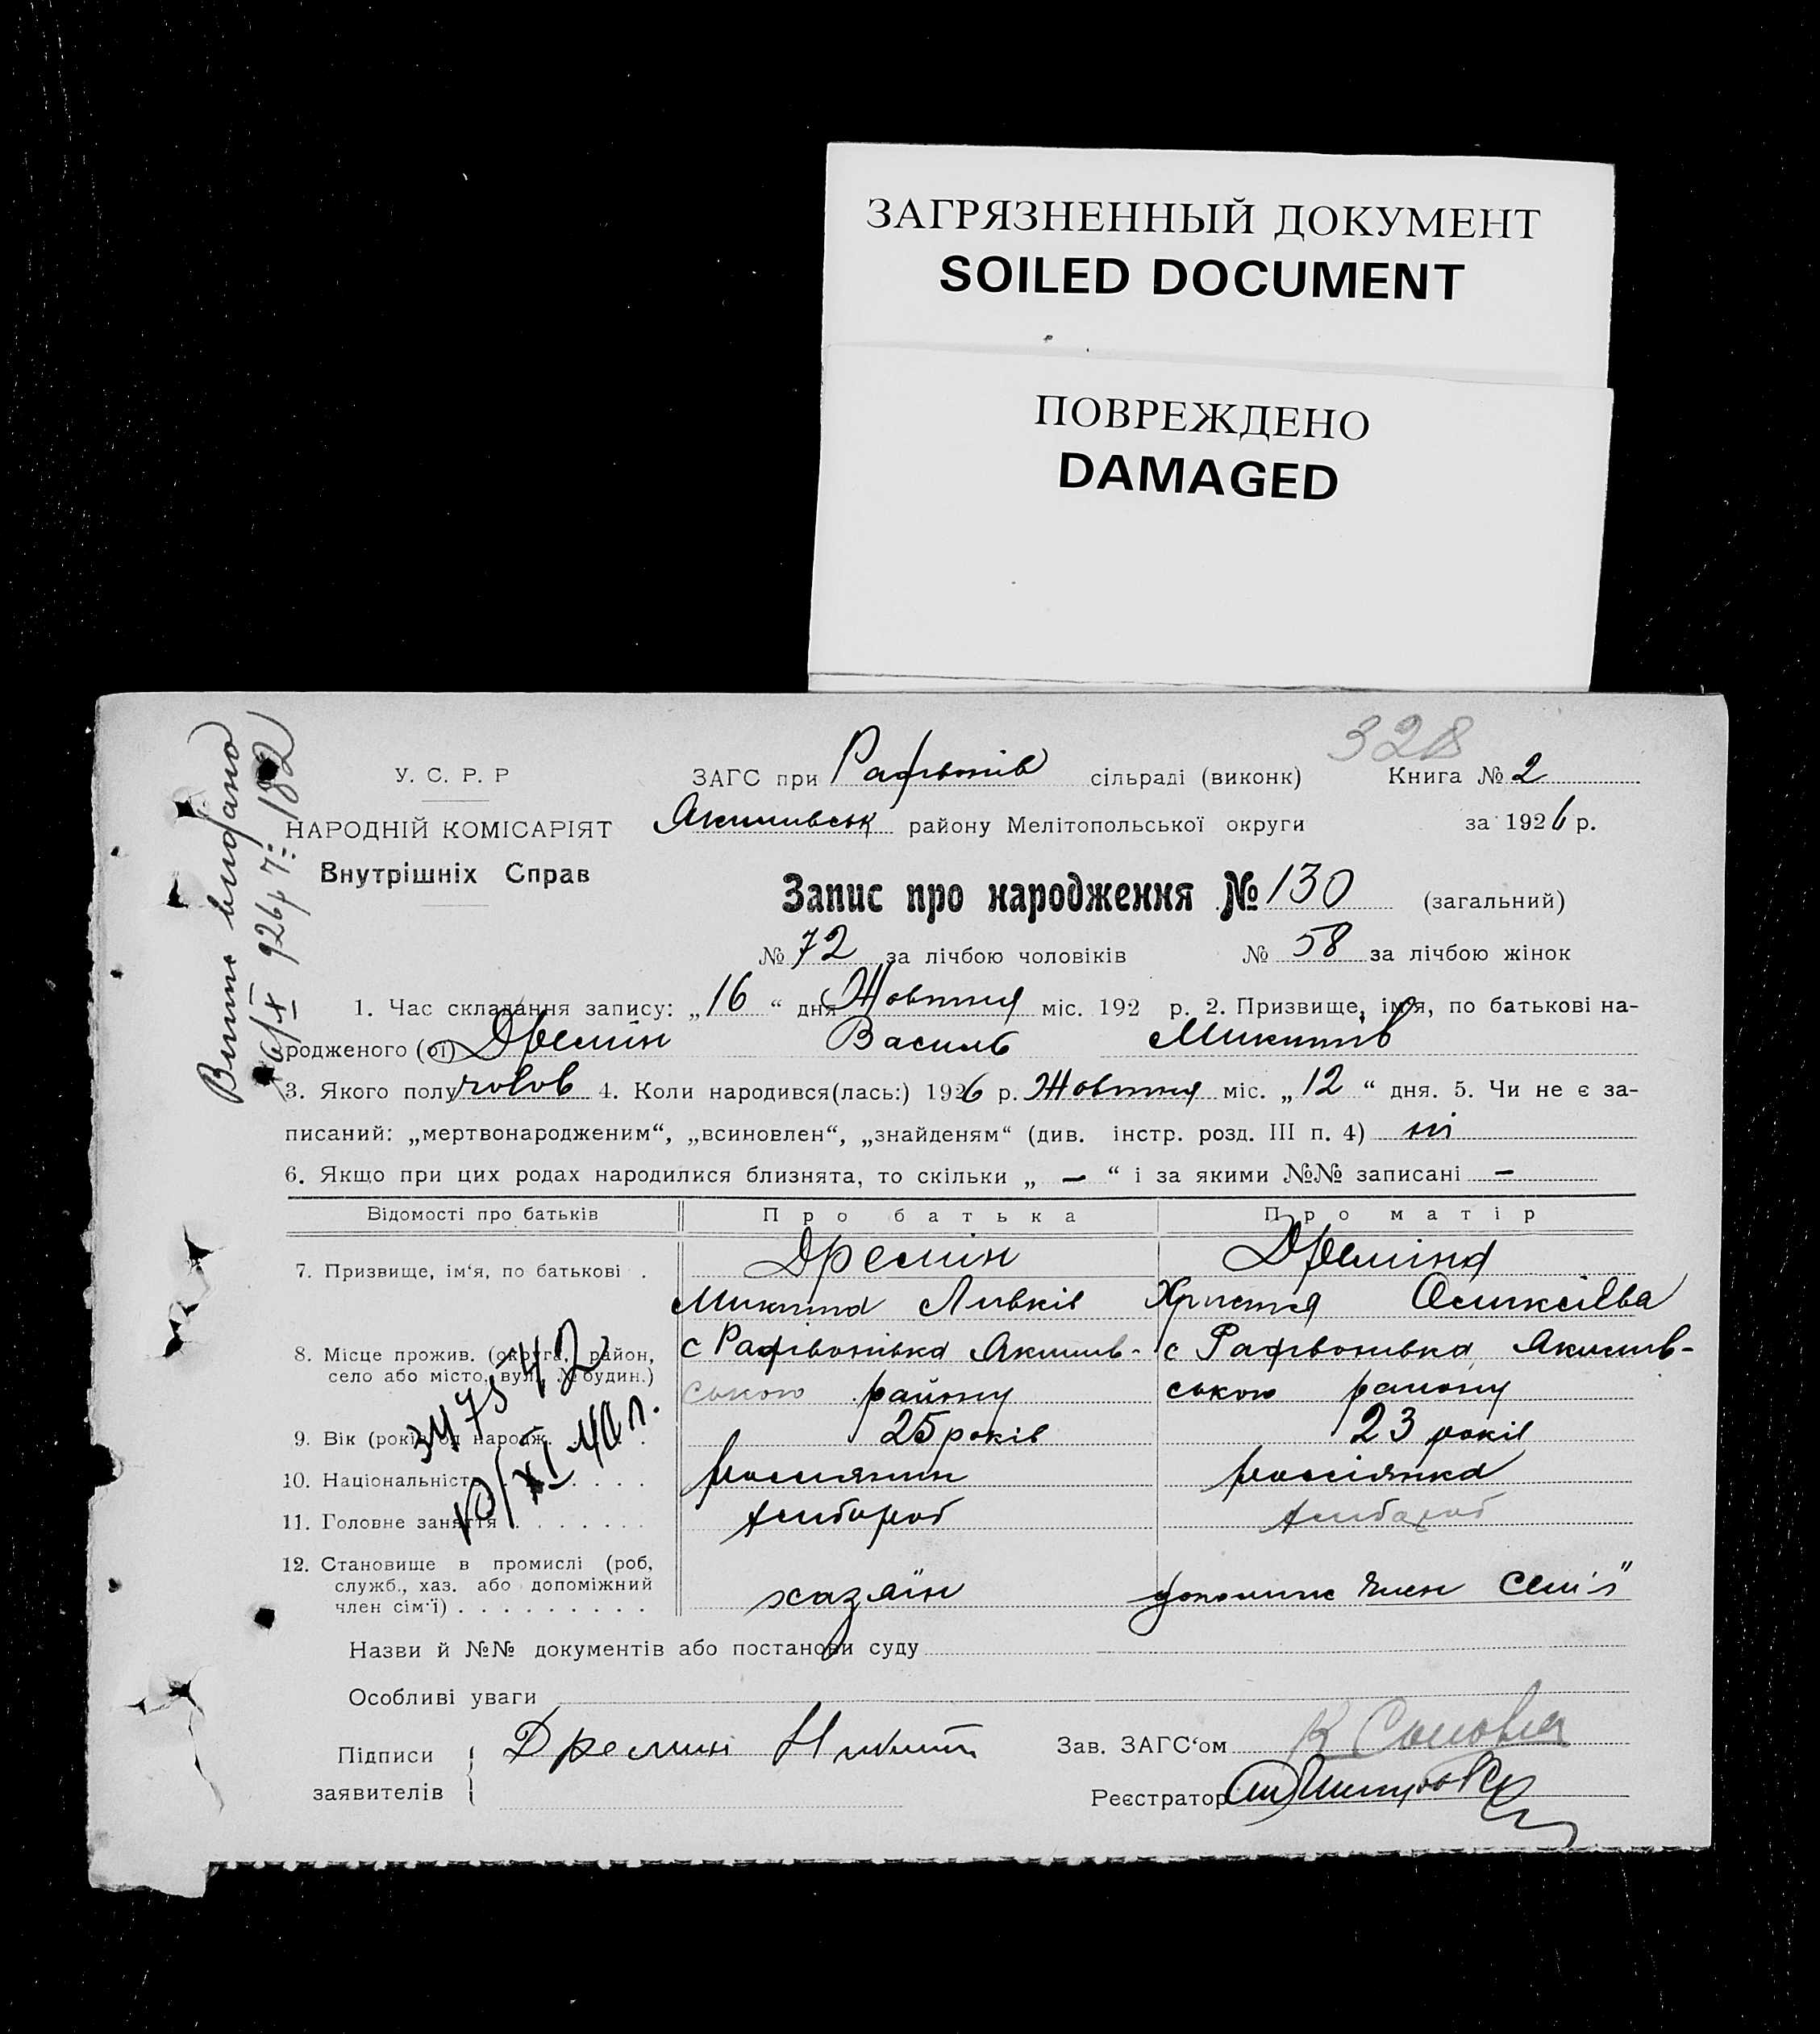 ЗАГРЯЗНЕННЫЙ ДОКУМЕНТ
SOILED DOCUMENT
ПОВРЕЖДЕНО
DAMAGED
328
У. С. Р. Р
НАРОДНІЙ КОМІСАРІЯТ
Внутрішніх Справ
ЗАГС при Рафвонів сільраді (виконк) Книга № 2
Якимівськ району Мелітопольської округи за 1926 р.
Запис про народження № 130 (загальний)
№ 72 за лічбою чоловіків № 58 за лічбою жінок
1. Час складання запису: „16“ дня Жовтня міс. 192 р. 2. Призвище, ім'я, по батькові на-
родженого (ої) Дремін Василь Микитів
3. Якого полу чолов 4. Коли народився(лась:) 1926 р. Жовтня міс. „12“ дня. 5. Чи не є за-
писаний: „мертвонародженим“, „всиновлен“, „знайденям“ (див. інстр. розд. III п. 4) ні
6. Якщо при цих родах народилися близнята, то скільки „ — “ і за якими №№ записані —
Відомості про батьків Про батька Про матір
7. Призвище, ім'я, по батькові . Дремін Дреміна
Микита Христя
8. Місце прожив. (округа, район, с Рафівонівка Якимів- с Рафвонивка Якимів-
село або місто, вул., № будин.) ського району ського району
9. Вік (років од народж. 25 років 23 років
10. Національність россиянин россіянка
11. Головне заняття хлібороб хлібороб
12. Становище в промислі (роб, служб., хаз. або допоміжний член сім'ї) хазяїн допоміж член сем'ї
Назви й №№ документів або постанови суду
Особливі уваги
Підписи заявителів Дремин Никита
Зав. ЗАГС'ом
Реєстратор
Випис видано
926 р 7: 182
3475 42